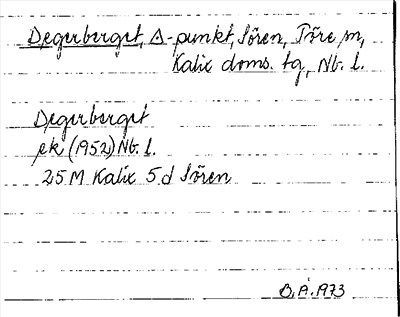 Degerberget, △-punkt, Sören, Töre sn,
Kalix doms. tg, Nb. l.
Degerberget
ek (1952) Nb. l.
25 M Kalix 5 d Sören
B.Å. 1973